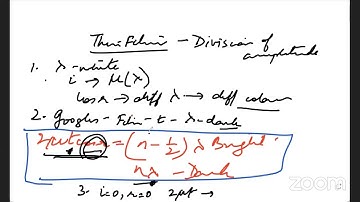 Thin Film – Division of
amplitude
1. λ – white
i → μ(λ)
cos r → diff λ → diff colour
2. googles – Film – t – λ – dark
2μt cos r = (n – 1/2) λ Bright
nλ – Dark
3. i=0, r=0 2μt →
zoom